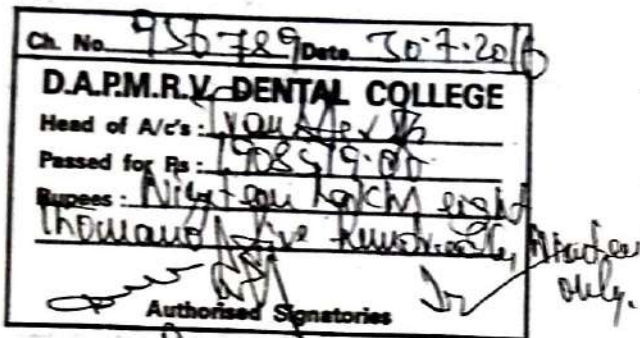 Ch. No. 956789 Date 30.7.2016
D.A.P.M.R.V. DENTAL COLLEGE
Head of A/c's :
Passed for Rs : 1908519.00
Rupees : Nineteen Lakh eight
thousand five hundred Nineteen
only.
Authorised Signatories